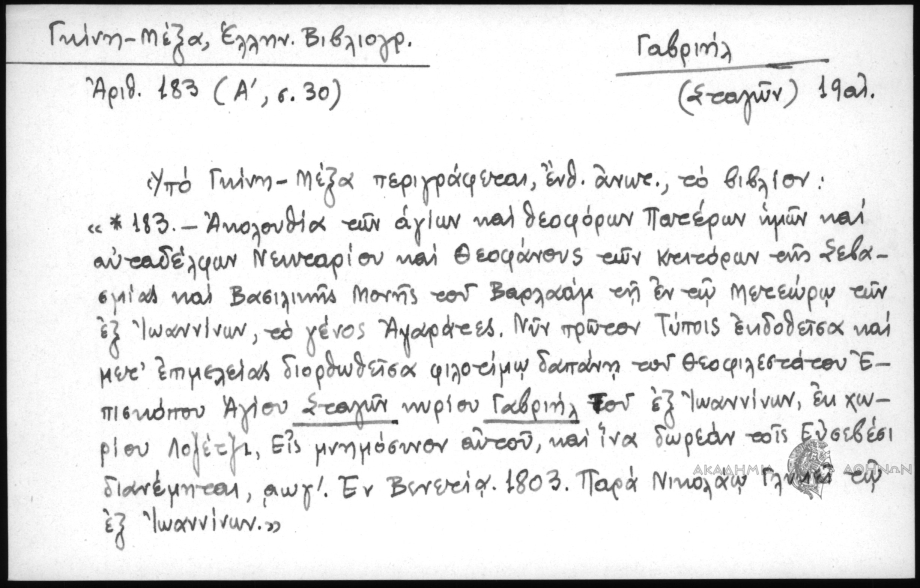 Γκίνη-Μέξα, Ἑλλην. Βιβλιογρ.
Ἀριθ. 183 (Α', σ. 30)
Γαβριήλ
(Σταγῶν) 19 αἰ.
Ὑπό Γκίνη-Μέξα περιγράφεται, ἔνθ. ἄνωτ., τό βιβλίον:
« *183.- Ἀκολουθία τῶν ἁγίων καί θεοφόρων Πατέρων ἡμῶν καί
αὐταδέλφων Νεκταρίου καί Θεοφάνους τῶν κτιτόρων τῆς Σεβα-
σμίας καί Βασιλικῆς Μονῆς τοῦ Βαρλαάμ τῇ ἐν τῷ Μετεώρῳ τῶν
ἐξ Ἰωαννίνων, τό γένος Ἀψαράτες. Νῦν πρῶτον Τύποις ἐκδοθεῖσα καί
μετ' ἐπιμελείας διορθωθεῖσα φιλοτίμῳ δαπάνῃ τοῦ Θεοφιλεστάτου Ἐ-
πισκόπου Ἁγίου Σταγῶν κυρίου Γαβριήλ τοῦ ἐξ Ἰωαννίνων, ἐκ χω-
ρίου Λοζέτζι, Εἰς μνημόσυνον αὐτοῦ, καί ἵνα δωρεάν τοῖς Εὐσεβέσι
διανέμηται, ͵αωγ'. Ἐν Βενετίᾳ. 1803. Παρά Νικολάῳ Γλυκεῖ τῷ
ἐξ Ἰωαννίνων.»
ΑΚΑΔΗΜΙΑ ΑΘΗΝΩΝ